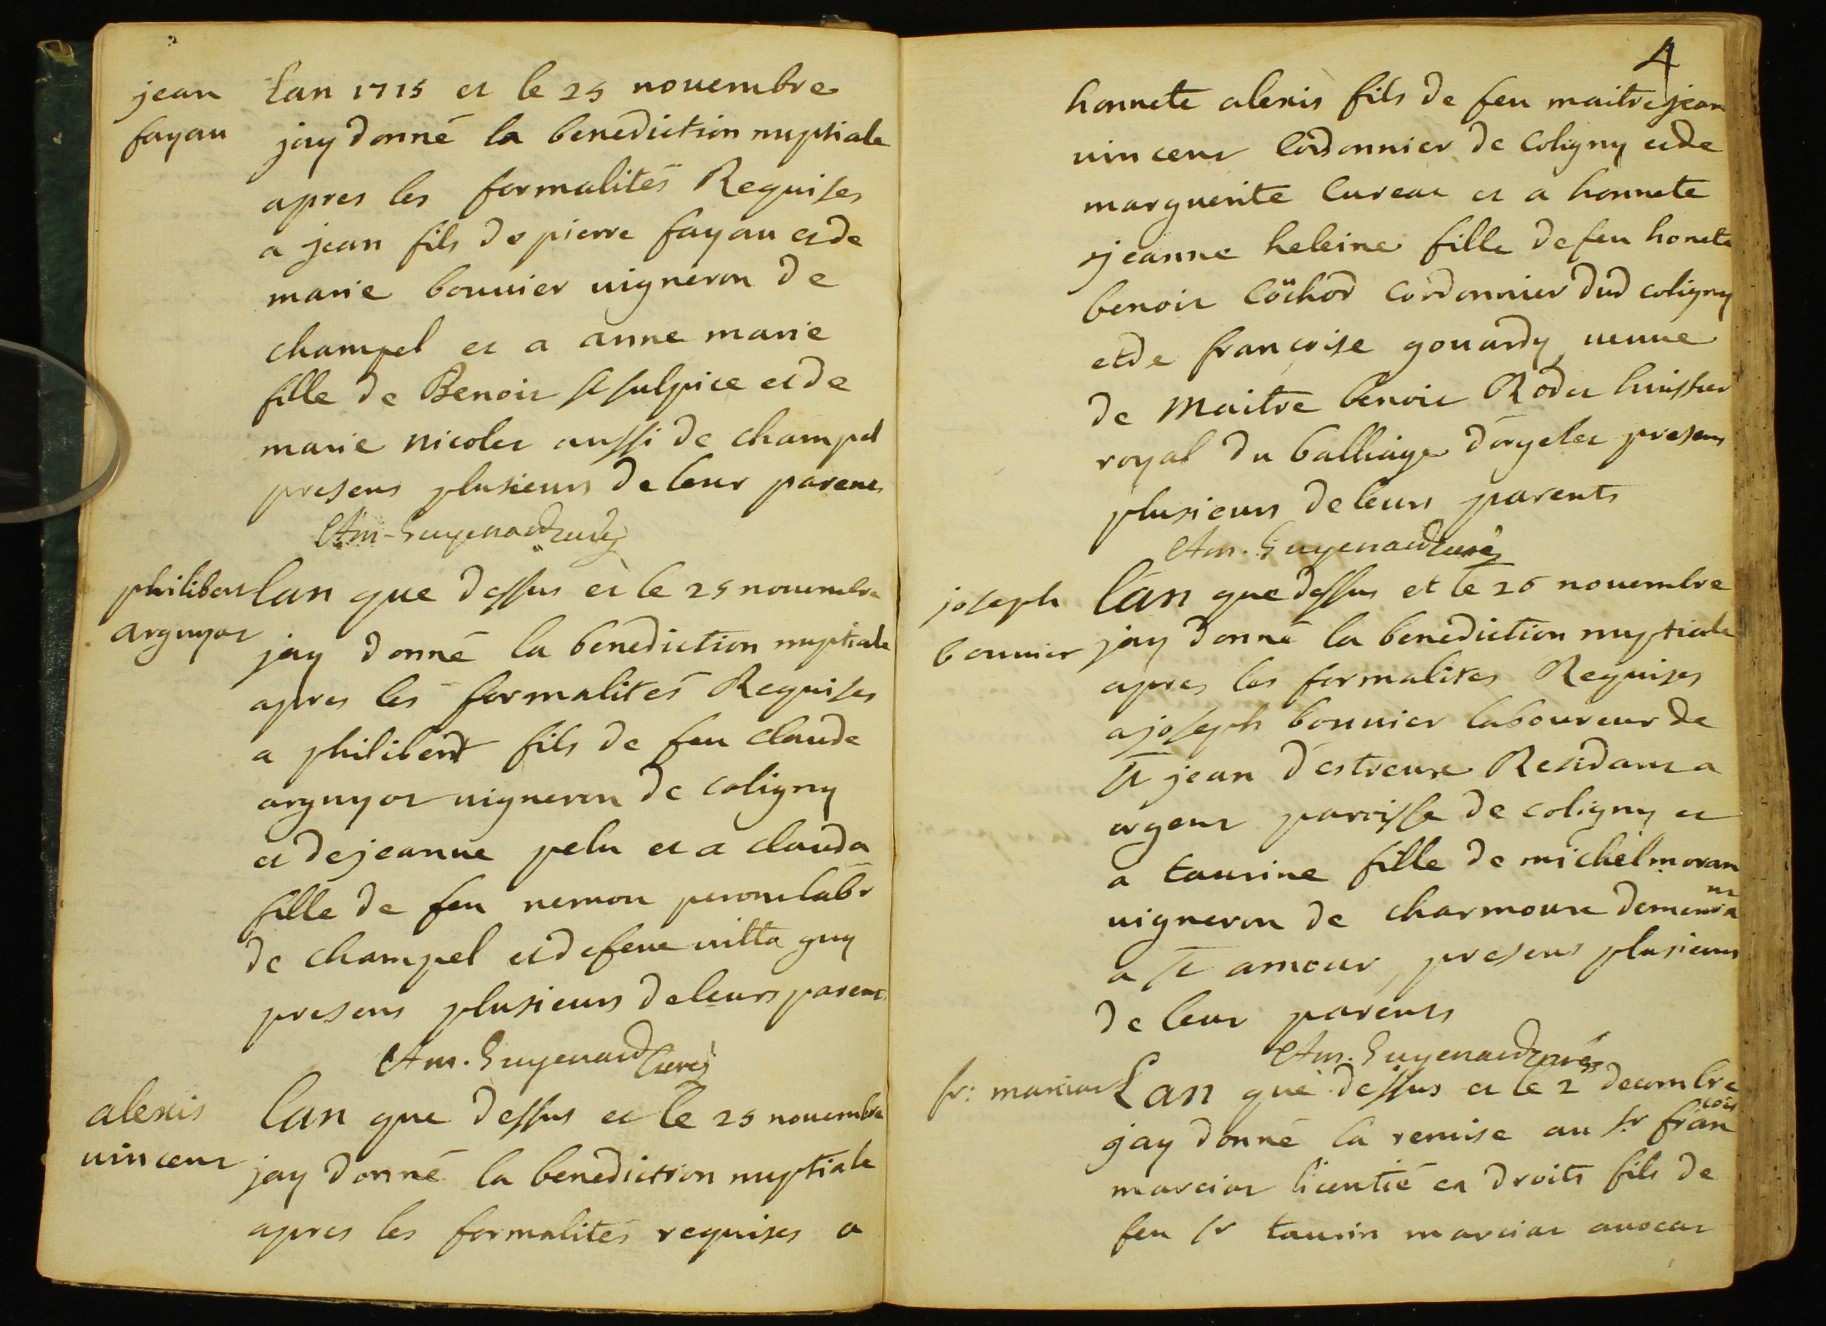 jean
fayau
Lan 1715 et le 25 novembre
jay donné la benediction nuptiale
apres les formalités Requises
a jean fils de pierre fayau et de
marie bouvier vigneron de
champel et a anne marie
fille de Benoit st sulpice et de
marie nicolet aussi de champel
presens plusieurs de leur parens
Am. Guyenard curé
philibert
arguyot
lan que dessus et le 25 novembre
jay donné la benediction nuptiale
apres les formalités Requises
a philibert fils de feu claude
arguyot vigneron de coligny
et de jeanne pelu et a clauda
fille de feu labr
de champel et de feue guy
presens plusieurs de leurs parens
Am. Guyenard Curé
alexis
vincent
lan que dessus et le 25 novembre
jay donné la benediction nuptiale
apres les formalités requises a
4
honnete alexis fils de feu maitre jean
vincent Cordonnier de Coligny et de
marguerite Cureat et a honnete
jeanne heleine fille de feu honete
benoit cordonnier dud coligny
et de francoise gouardy veuve
de Maitre benoit Rodet huissier
royal du balliage dorgelet presens
plusieurs de leurs parents
Am. Guyenard Curé
joseph
bouvier
lan que dessus et le 26 novembre
jay donné la benediction nuptiale
apres les formalites Requises
a joseph bouvier laboureur de
st jean d'estreux Residant a
argent paroisse de coligny et
a taurine fille de michel moran
vigneron de charmoux demeurant
a st amour, presens plusieurs
de leur parents
Am. Guyenard curé
fr: marciat
Lan que dessus et le 2 decembre
jay donné la remise au sr francois
marciat licentié en droits fils de
feu sr taurin marciat avocat